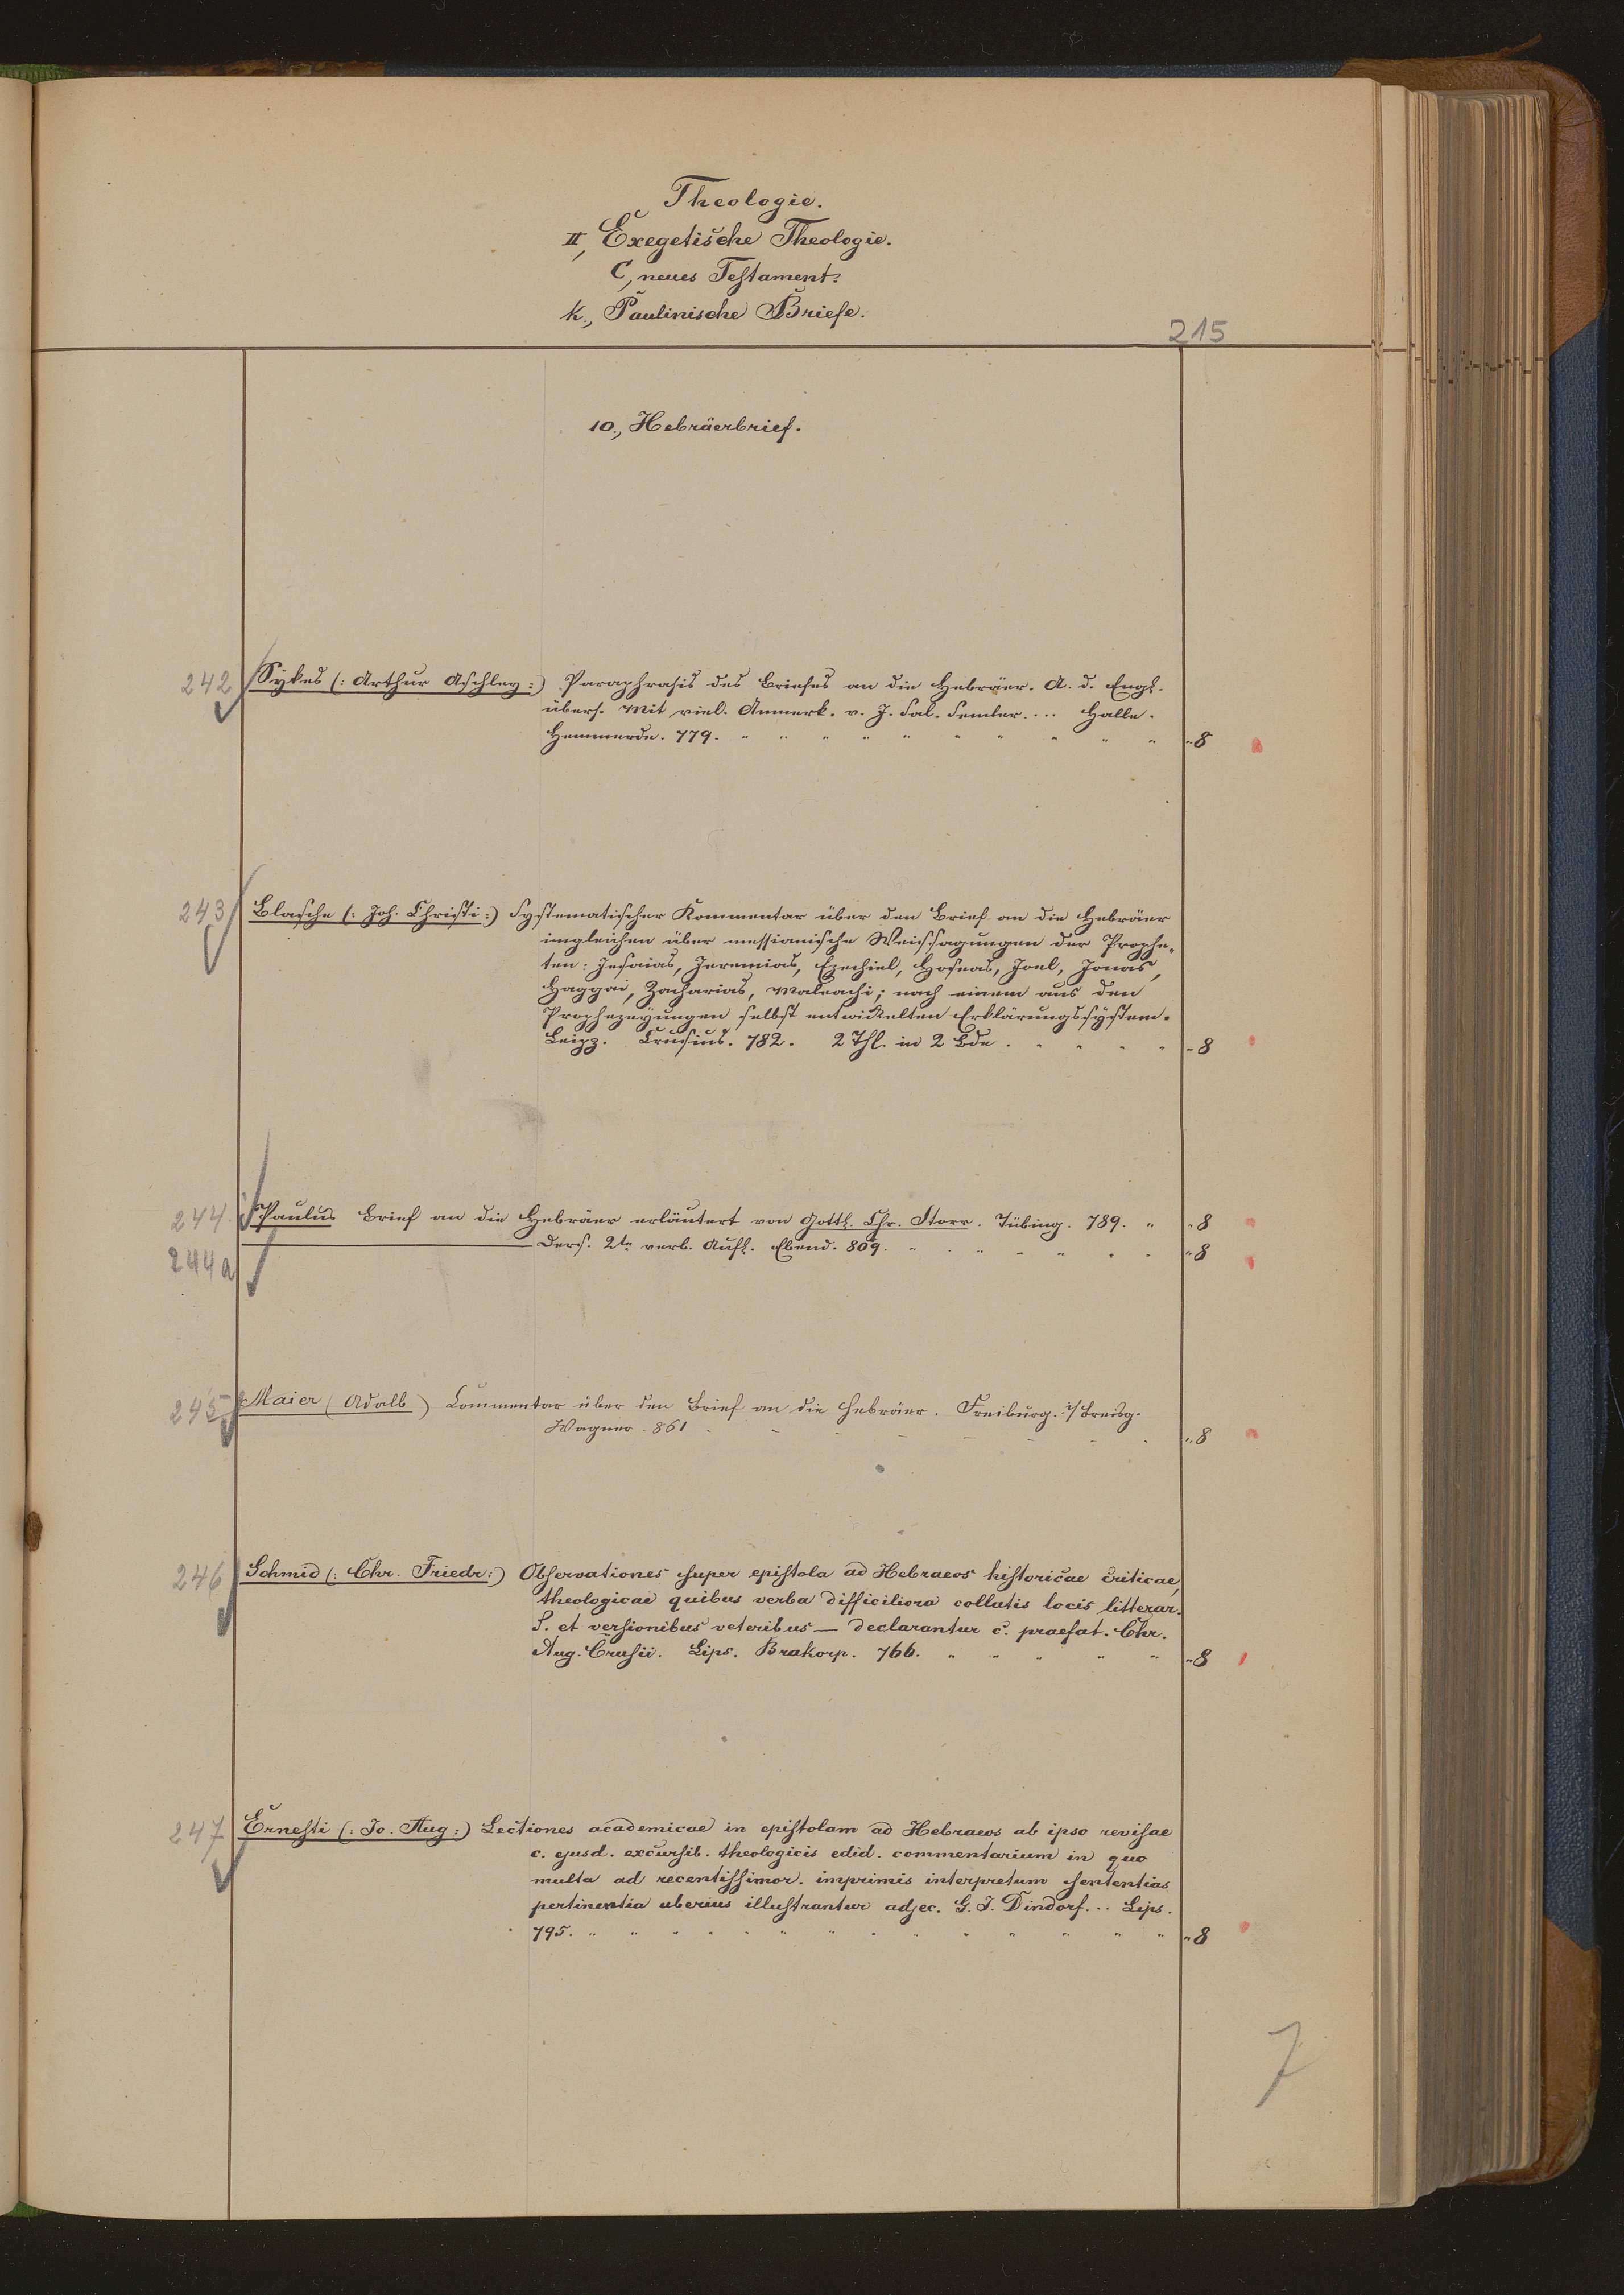 Theologie.
II, Exegetische Theologie.
C, neues Testament.
k., Paulinische Briefe.
215
10., Hebräerbrief.
242 Sykes (: Arthur Aschley :) Paraphrasis des Briefes an die Hebräer. A. d. Engl.
übers. Mit viel. Anmerk. v. J. Sal. Semler.... Halle.
Hemmerde. 779. " " " " " " " " " " " 8
243 Blasche (: Joh. Christi :) Systematischer Kommentar über den Brief an die Hebräer
imgleichen über messianische Weissagungen der Prophe-
ten: Jesaias, Jeremias, Ezechiel, Hoseas, Joel, Jonas,
Haggai, Zacharias, Maleachi; nach einem aus den
Prophezeyungen selbst entwickelten Erklärungssystem.
Leipz. Crusius. 782. 2 Thl. in 2 Bde. " " " " " 8
244 Paulus Brief an die Hebräer erläutert von Gottl. Chr. Storr. Tübing. 789. " " 8
244a ——— Ders. 2te verb. Aufl. Ebend. 809. " " " " " " " " 8
245 Maier (Adalb) Commentar über den Brief an die Hebräer. Freiburg. i/Breisg.
Wagner. 861 - - - - - - - " 8
246 Schmid (: Chr. Friedr :) Observationes super epistola ad Hebraeos historicae criticae,
theologicae quibus verba difficiliora collatis locis litterar.
S. et versionibus veteribus — declarantur c. praefat. Chr.
Aug. Crusii. Lips. Brakorp. 766. " " " " " " 8
247 Ernesti (: Jo. Aug :) Lectiones academicae in epistolam ad Hebraeos ab ipso revisae
c. ejusd. excursib. theologicis edid. commentarium in quo
multa ad recentissimor. imprimis interpretum sententias
pertinentia uberius illustrantur adjec. G. I. Dindorf... Lips.
795. " " " " " " " " " " " " " " " 8
7